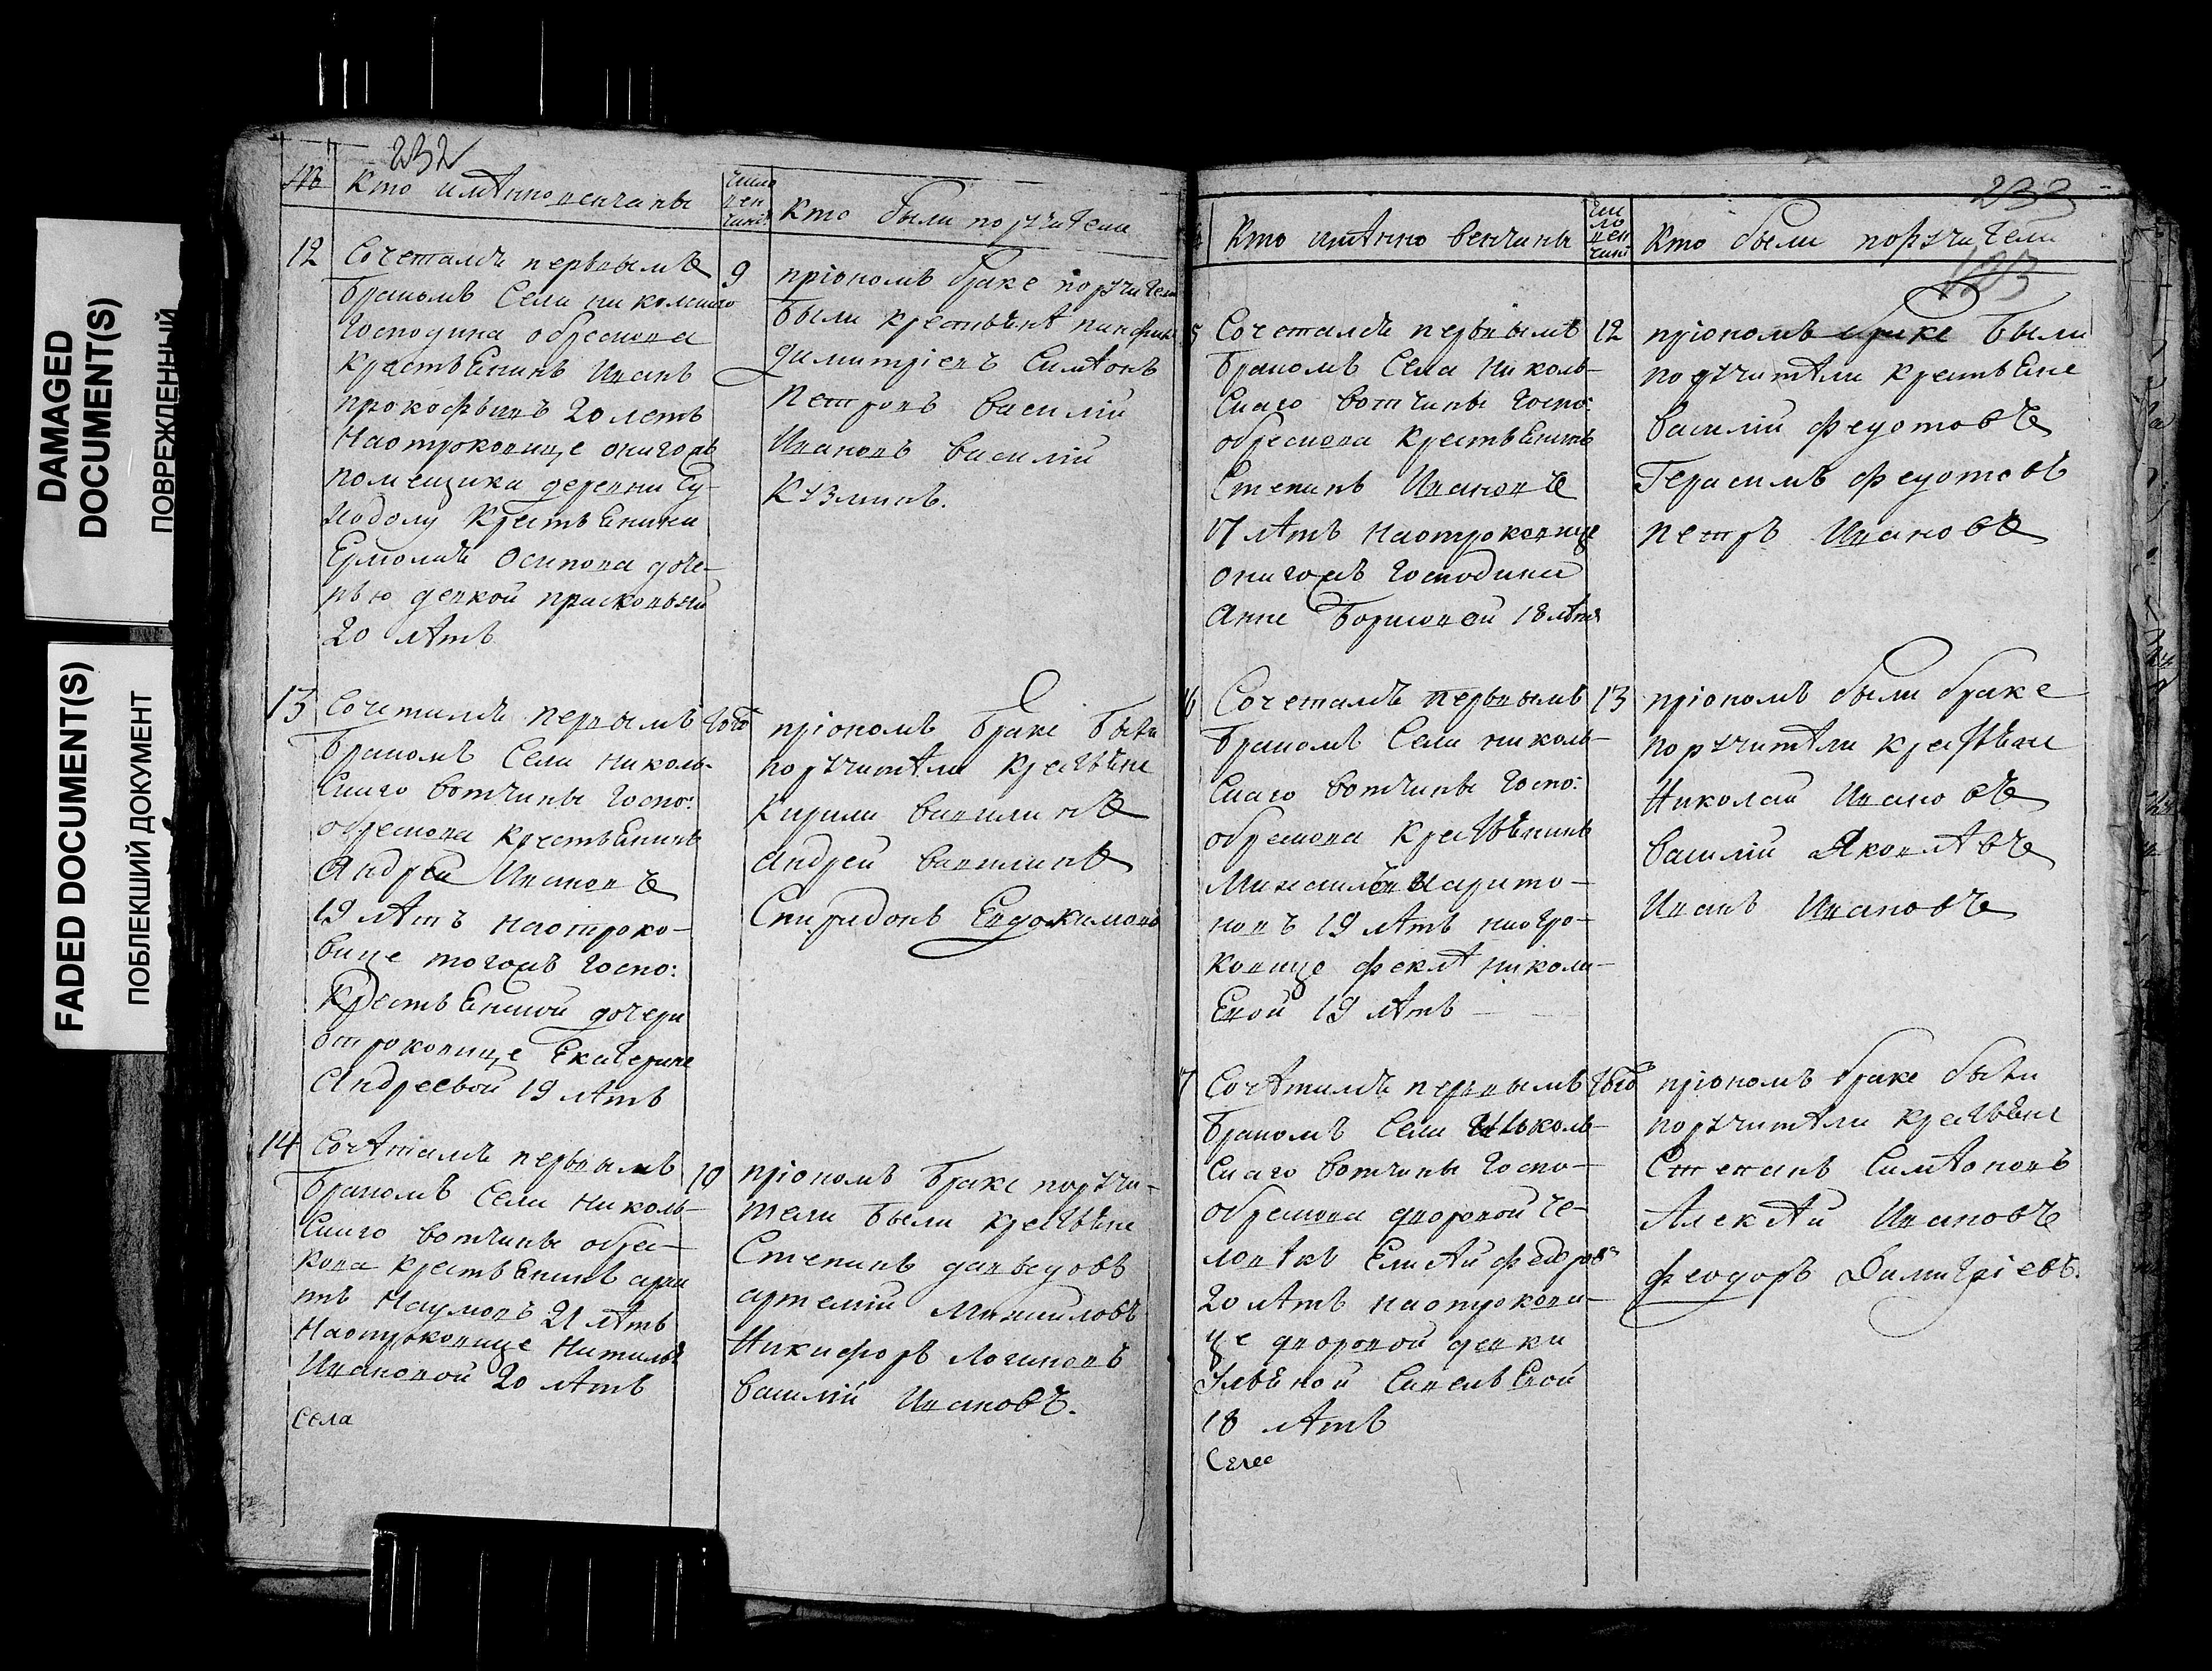 DAMAGED
DOCUMENT(S)
ПОВРЕЖДЕННЫЙ
FADED DOCUMENT(S)
ПОБЛЕКШИЙ ДОКУМЕНТ
232
№
Кто имѣнно венчаны
число
вен
чание
Кто были поручители
12
Сочеталъ первымъ
бракомъ села николскаго
Господина обрескова
крестьѣнинъ Иванъ
прокофьивъ 20 летъ
На отроковице
помещика деревни Су-
ходолу крестьѣнина
Ермолаѣ Осипова доче-
рью девкой прасковьий
20 лѣтъ
9
приономъ браке поручители
были крестьѣнѣ
Димитриевъ Симѣонъ
Петровъ василий
Ивановъ василий
Кузминъ.
13
Сочеталъ первымъ
бракомъ села николь-
скаго вотчины госпо:
обрескова крестьѣнинъ
Андрей Ивановъ
19 лѣтъ на отроко-
вице тогожъ госпо:
крестьѣнской дочери
отроковице Екатерине
Андреевой 19 лѣтъ
того
приономъ браке были
поручитѣли крестьѣне
Кирила вавилинъ
андрей вавилинъ
Спиридонъ Евдокимовъ
14
Сочѣталъ первымъ
бракомъ села николь-
скаго вотчины обрес-
кова крестьѣнинъ
Наумовъ 21 лѣтъ
На отроковице Наталье
Ивановой 20 лѣтъ
села
10
приономъ браке поручи-
тели были крестьѣне
Степанъ давыдовъ
артемий михаиловъ
Никифоръ логиновъ
василий Ивановъ.
233
Кто имѣнно венчаны
чис
ло
вен
чание
Кто были поручители
5
Сочеталъ первымъ
бракомъ села николь-
скаго вотчины госпо:
обрескова крестьѣнинъ
Степанъ Ивановъ
17 лѣтъ на отроковице
онагожъ господина
анне борисовой 18 лѣтъ
12
приономъ браке были
поручитѣли крестьѣне
василий федотовъ
Герасимъ федотовъ
петръ Ивановъ
6
Сочеталъ первымъ
бракомъ села николь-
скаго вотчины госпо:
обрескова крестьѣнинъ
Михаилъ харито-
новъ 19 лѣтъ на отро-
ковице феклѣ никола-
Евой 19 лѣтъ
13
приономъ были браке
поручитѣли крестьѣне
Николай Ивановъ
василий Яковлѣвъ
Иванъ Ивановъ
7
Сочѣталъ первымъ
бракомъ села никколь-
скаго вотчины госпо-
обрескова дворовой че-
ловѣкъ Елисѣй федоровъ
20 лѣтъ на отрокови-
це дворовой девки
Ульѣной савельЕвой
18 лѣтъ
Села
того
приономъ браке были
поручитѣли крестьѣне
Степанъ Симѣоновъ
Алексѣй Ивановъ
феодоръ Димитриевъ.